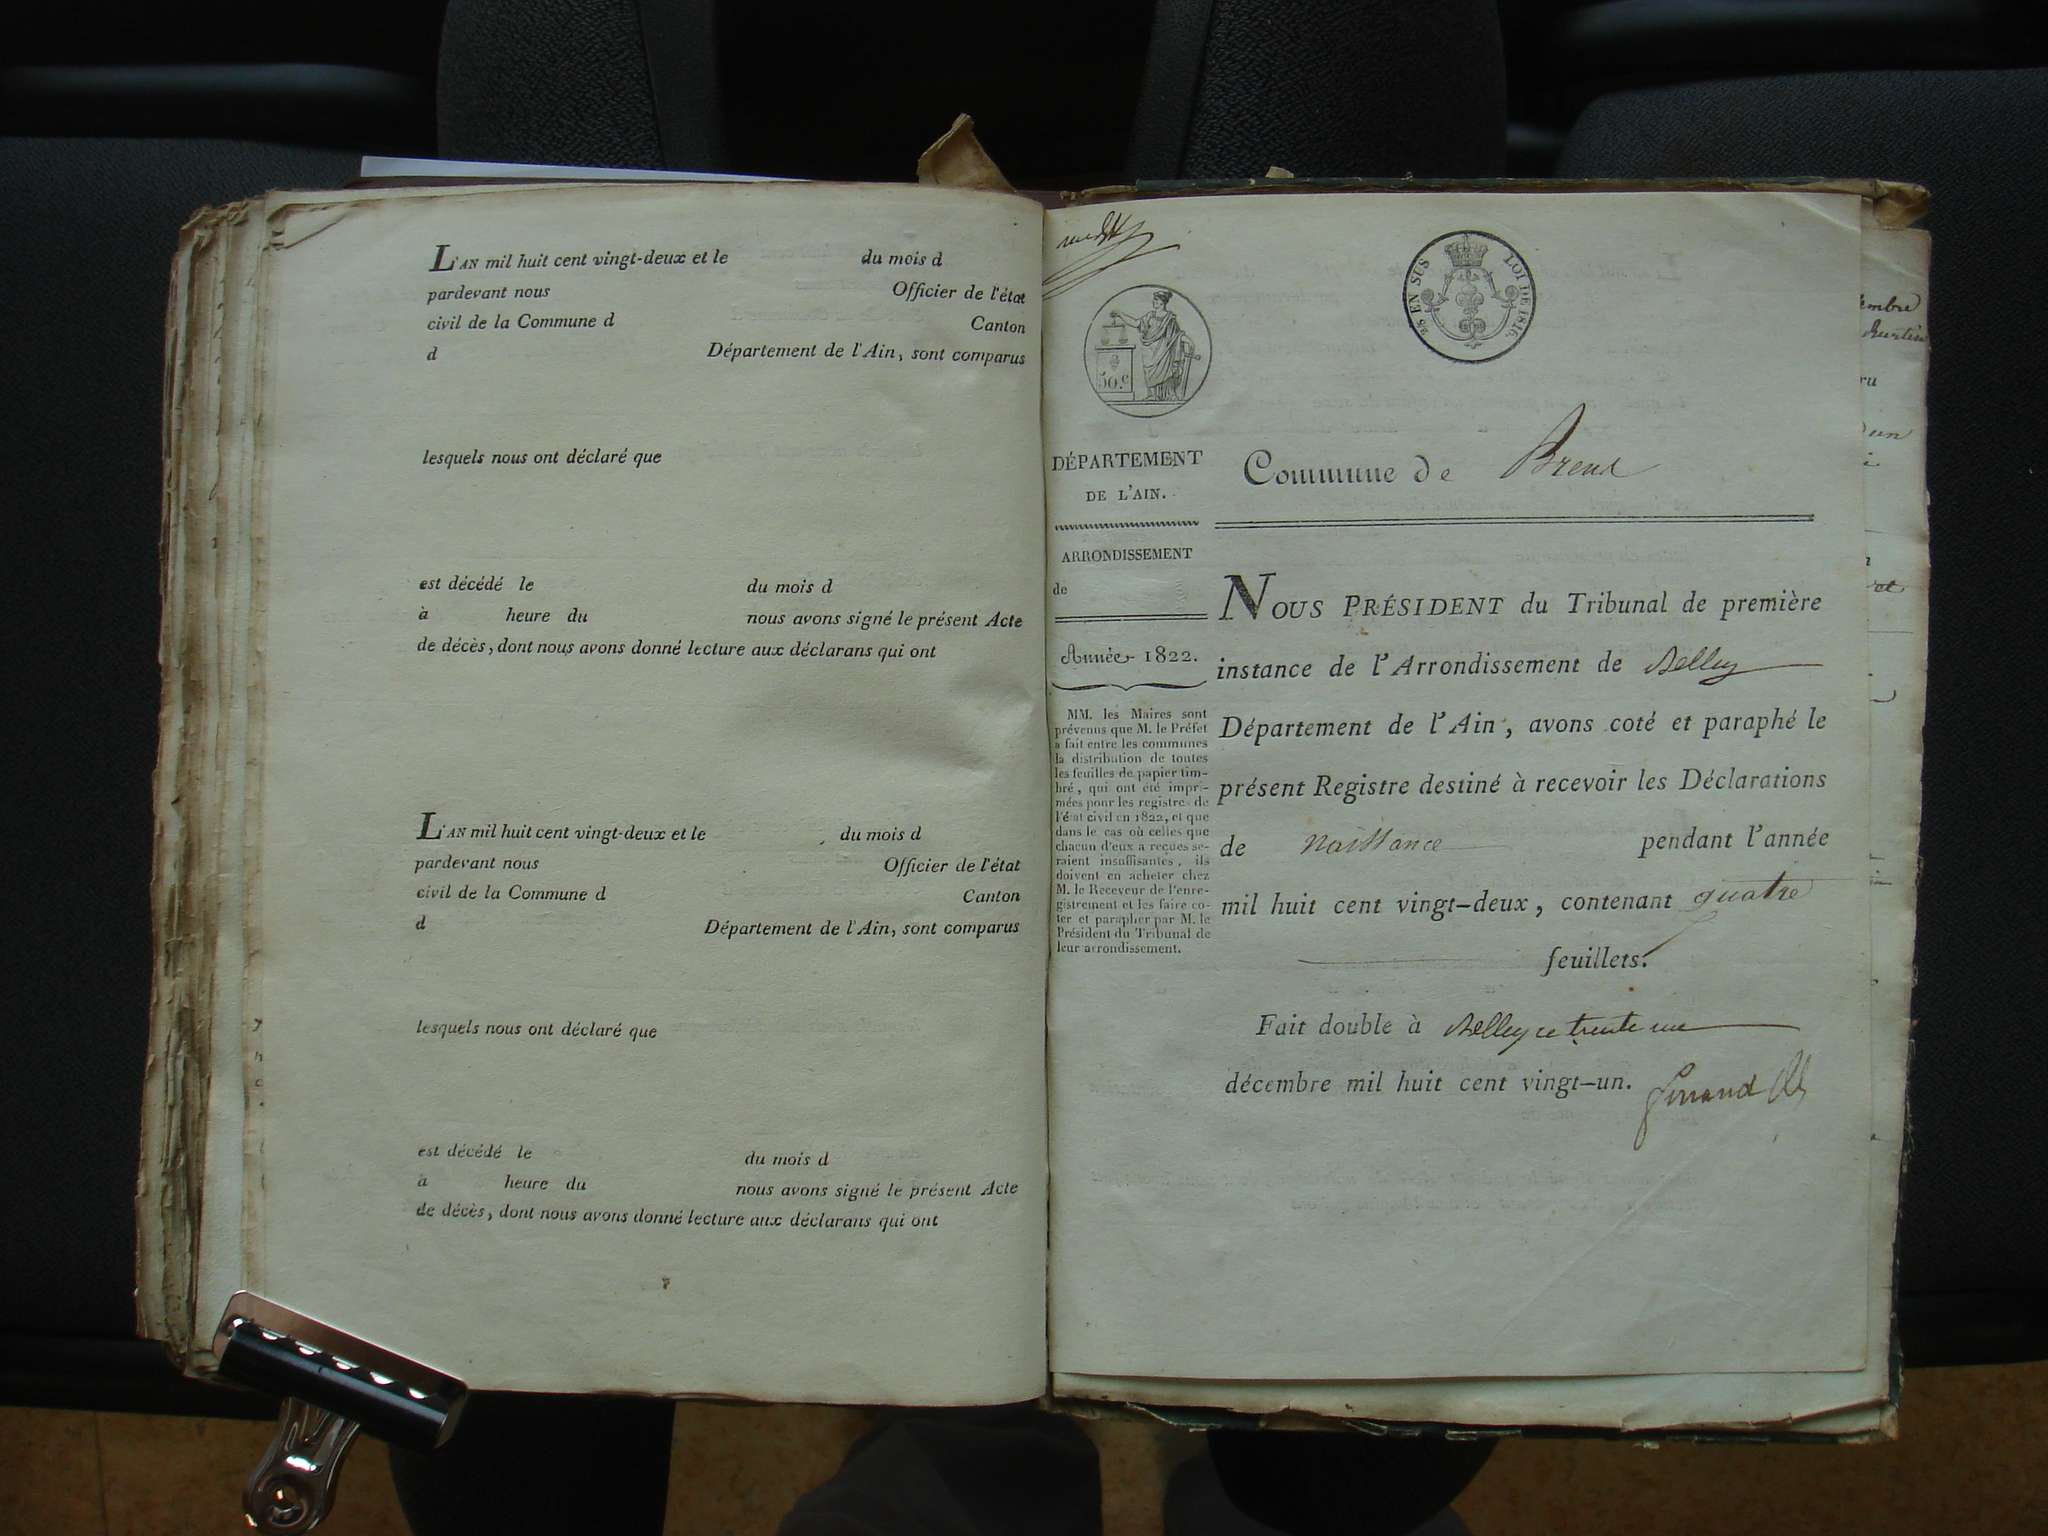 L'AN mil huit cent vingt-deux et le du mois d
pardevant nous Officier de l'état
civil de la Commune d Canton
d Département de l'Ain, sont comparus
lesquels nous ont déclaré que
est décédé le du mois d
à heure du nous avons signé le présent Acte
de décès, dont nous avons donné lecture aux déclarans qui ont
L'AN mil huit cent vingt-deux et le du mois d
pardevant nous Officier de l'état
civil de la Commune d Canton
d Département de l'Ain, sont comparus
lesquels nous ont déclaré que
est décédé le du mois d
à heure du nous avons signé le présent Acte
de décès, dont nous avons donné lecture aux déclarans qui ont
EN SUS LOI DE 1816.
50.c
DÉPARTEMENT
DE L'AIN.
ARRONDISSEMENT
de
Année 1822.
MM. les Maires sont
prévenus que M. le Préfet
a fait entre les communes
la distribution de toutes
les feuilles de papier tim-
bré, qui ont été impri-
mées pour les registre de
l'état civil en 1822, et que
dans le cas où celles que
chacun d'eux a reçues se-
raient insuffisantes, ils
doivent en acheter chez
M. le Receveur de l'enre-
gistrement et les faire co-
ter et parapher par M. le
Président du Tribunal de
leur arrondissement.
Commune de Brens
NOUS PRÉSIDENT du Tribunal de première
instance de l'Arrondissement de Belley
Département de l'Ain, avons coté et paraphé le
présent Registre destiné à recevoir les Déclarations
de naissance pendant l'année
mil huit cent vingt-deux, contenant quatre
feuillets.
Fait double à Belley ce trente un
décembre mil huit cent vingt-un.
embre
Burtin
ru
un
et